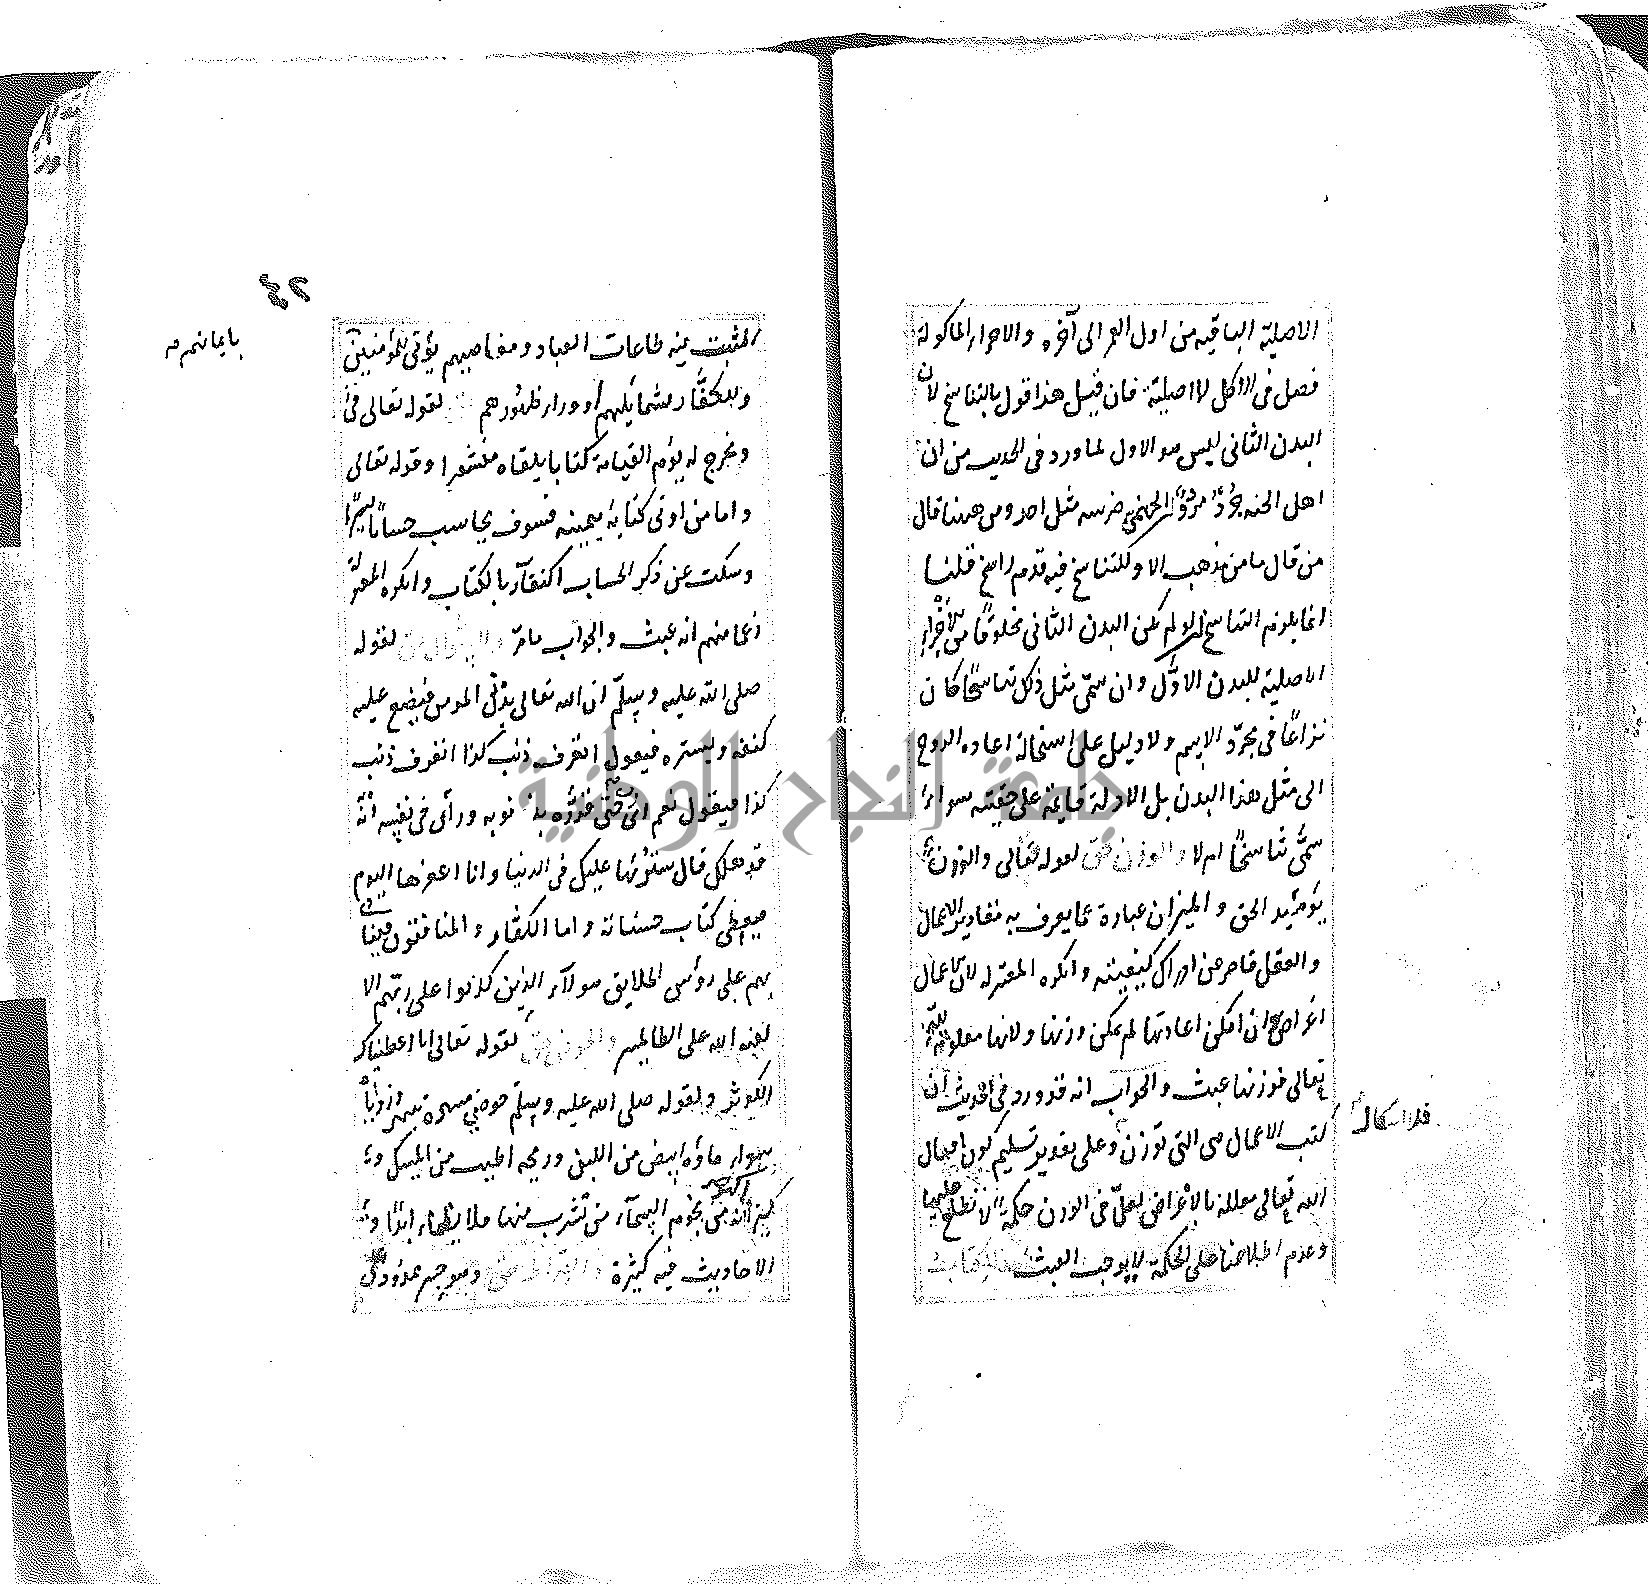 الاصلية الباقيه من اول العمر الى آخره والاجزاء الماكولة
فضل فى الاكل لا اصلية فان قيل هذا قول بالتناسخ لان
البدن الثانى ليس هو الاول لما ورد فى الحديث من ان
اهل الجنه جُرْدٌ مُرْدٌ وان الجهنمى ضرسه مثل احد ومن ههنا قال
من قال ما من مذهب الا وللتناسخ فيه قدم راسخ قلنا
انما يلزم التناسخ لو لم يكن البدن الثانى مخلوقاً من الاجزاء
الاصلية للبدن الاوّل وان سمّى مثل ذلك تناسخاً كان
نزاعاً فى مجرّد الاسم ولا دليل على استحالة اعادة الروح
الى مثل هذا البدن بل الادلة قايمة على حقيته سواء
سمّى تناسخاً ام لا والوزن حق لقوله تعالى والوزن
يومئذ الحق والميزان عبارة عما يعرف به مقادير الاعمال
والعقل قاصر عن ادراك كيفيته وانكره المعتزله لان الاعمال
اعراض ان امكن اعادتها لم يمكن وزنها ولانها معلومة لله
تعالى فوزنها عبث والجواب انه قد ورد فى الحديث ان
كتب الاعمال هى التى توزن وعلى تقدير تسليم كون افعال
فلا اشكال
الله تعالى معللة بالاغراض لعلّ فى الوزن حكمة لا نطلع عليها
وعدم اطلاعنا على الحكمة لا يوجب العبث والكتاب
المثبت فيه طاعات العباد ومعاصيهم يؤتى للمؤمنين
بايمانهم
وللكفّار بشمايلهم او وراء ظهورهم لقوله تعالى
ونخرج له يوم القيامة كتابا يلقاه منشورا وقوله تعالى
واما من اوتى كتابه بيمينه فسوف يحاسب حساباً يسيراً
وسكت عن ذكر الحساب اكتفآء بالكتاب وانكره المعتزلة
زعما منهم انه عبث والجواب ما مرّ والسؤال حق لقوله
صلى الله عليه وسلّم ان الله تعالى يدنى المومن فيضع عليه
كنفه ويستره فيقول اتعرف ذنب كذا اتعرف ذنب
كذا فيقول نعم اى رب حتى قرّره بذنوبه ورأى فى نفسه انّه
قد هلك قال سترتها عليك فى الدنيا وانا اغفرها اليوم
فيعطى كتاب حسناته واما الكفّار والمنافقون فينادى
بهم على رؤس الخلايق هولآء الذين كذبوا على ربّهم الا
لعنة الله على الظالمين والحوض حق لقوله تعالى انا اعطيناك
الكوثر ولقوله صلى الله عليه وسلّم حوضى مسيرة شهر وزواياه
سواء ماؤه ابيض من اللبن وريحه اطيب من المسك و
كيزانه اكثر من نجوم السمآء من شرب منها فلا يظماء ابدًا و
الاحاديث فيه كثيرة والصراط حق وهو جسر ممدود على
جامعة النجاح الوطنية